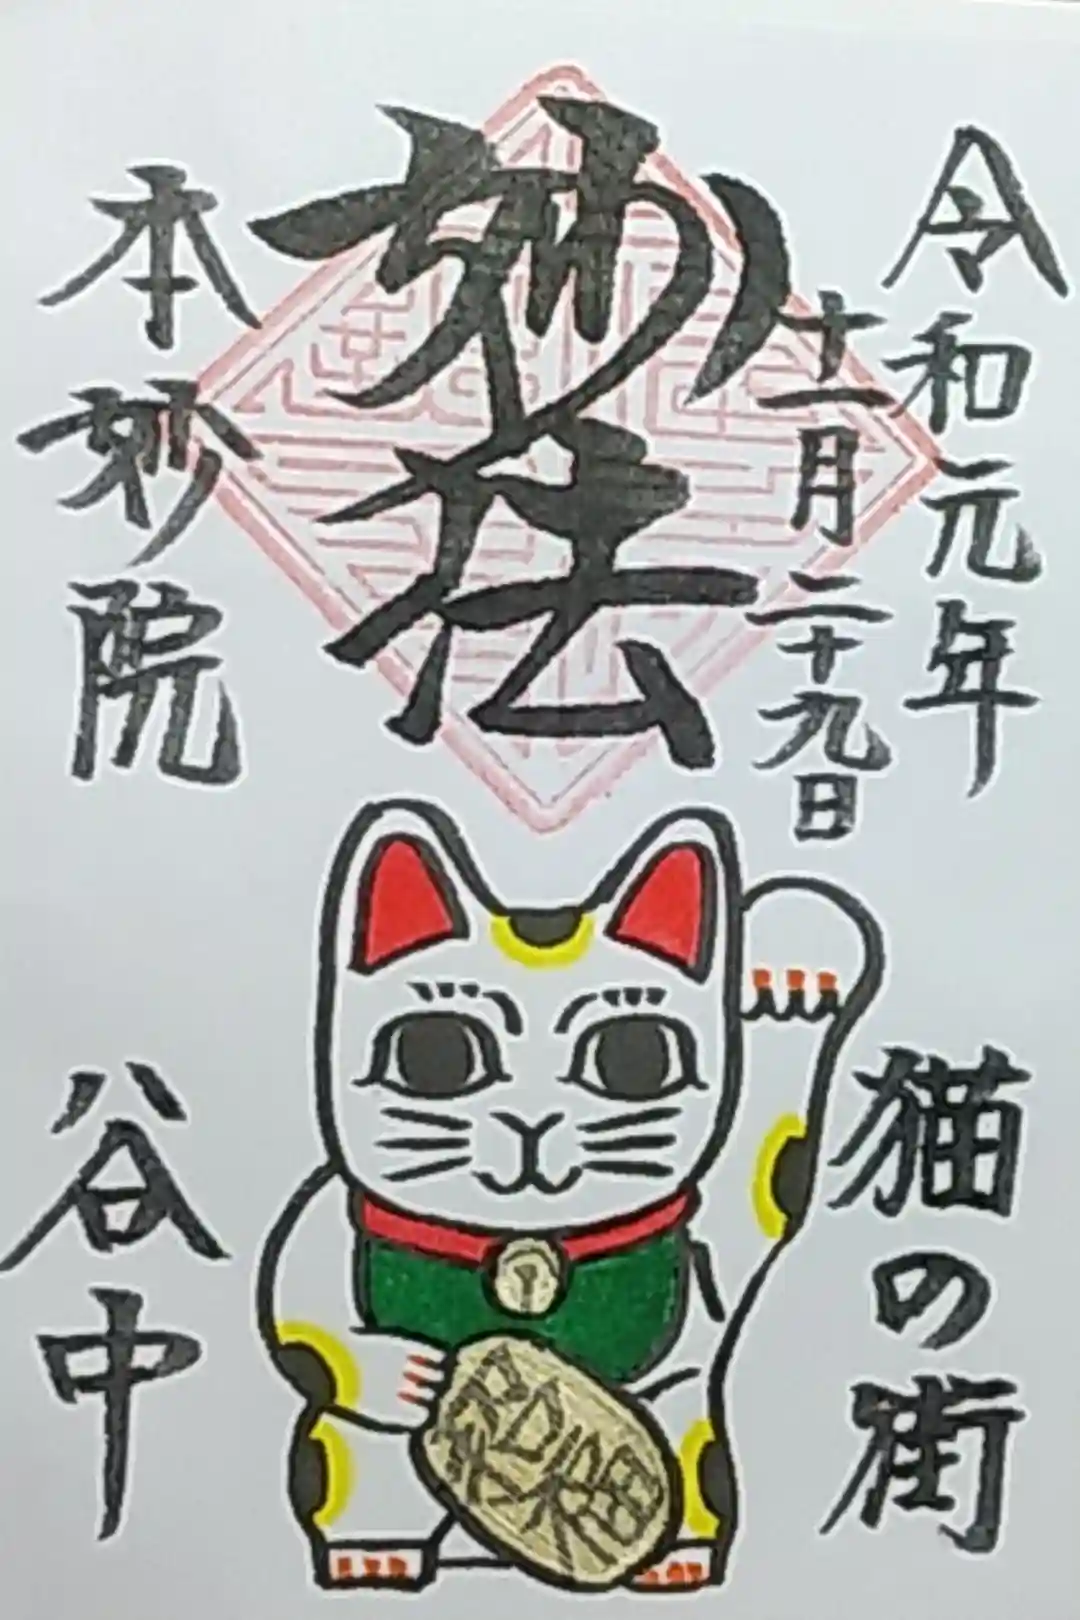 令和元年
十一月二十九日
妙法
本妙院
猫の街
谷中